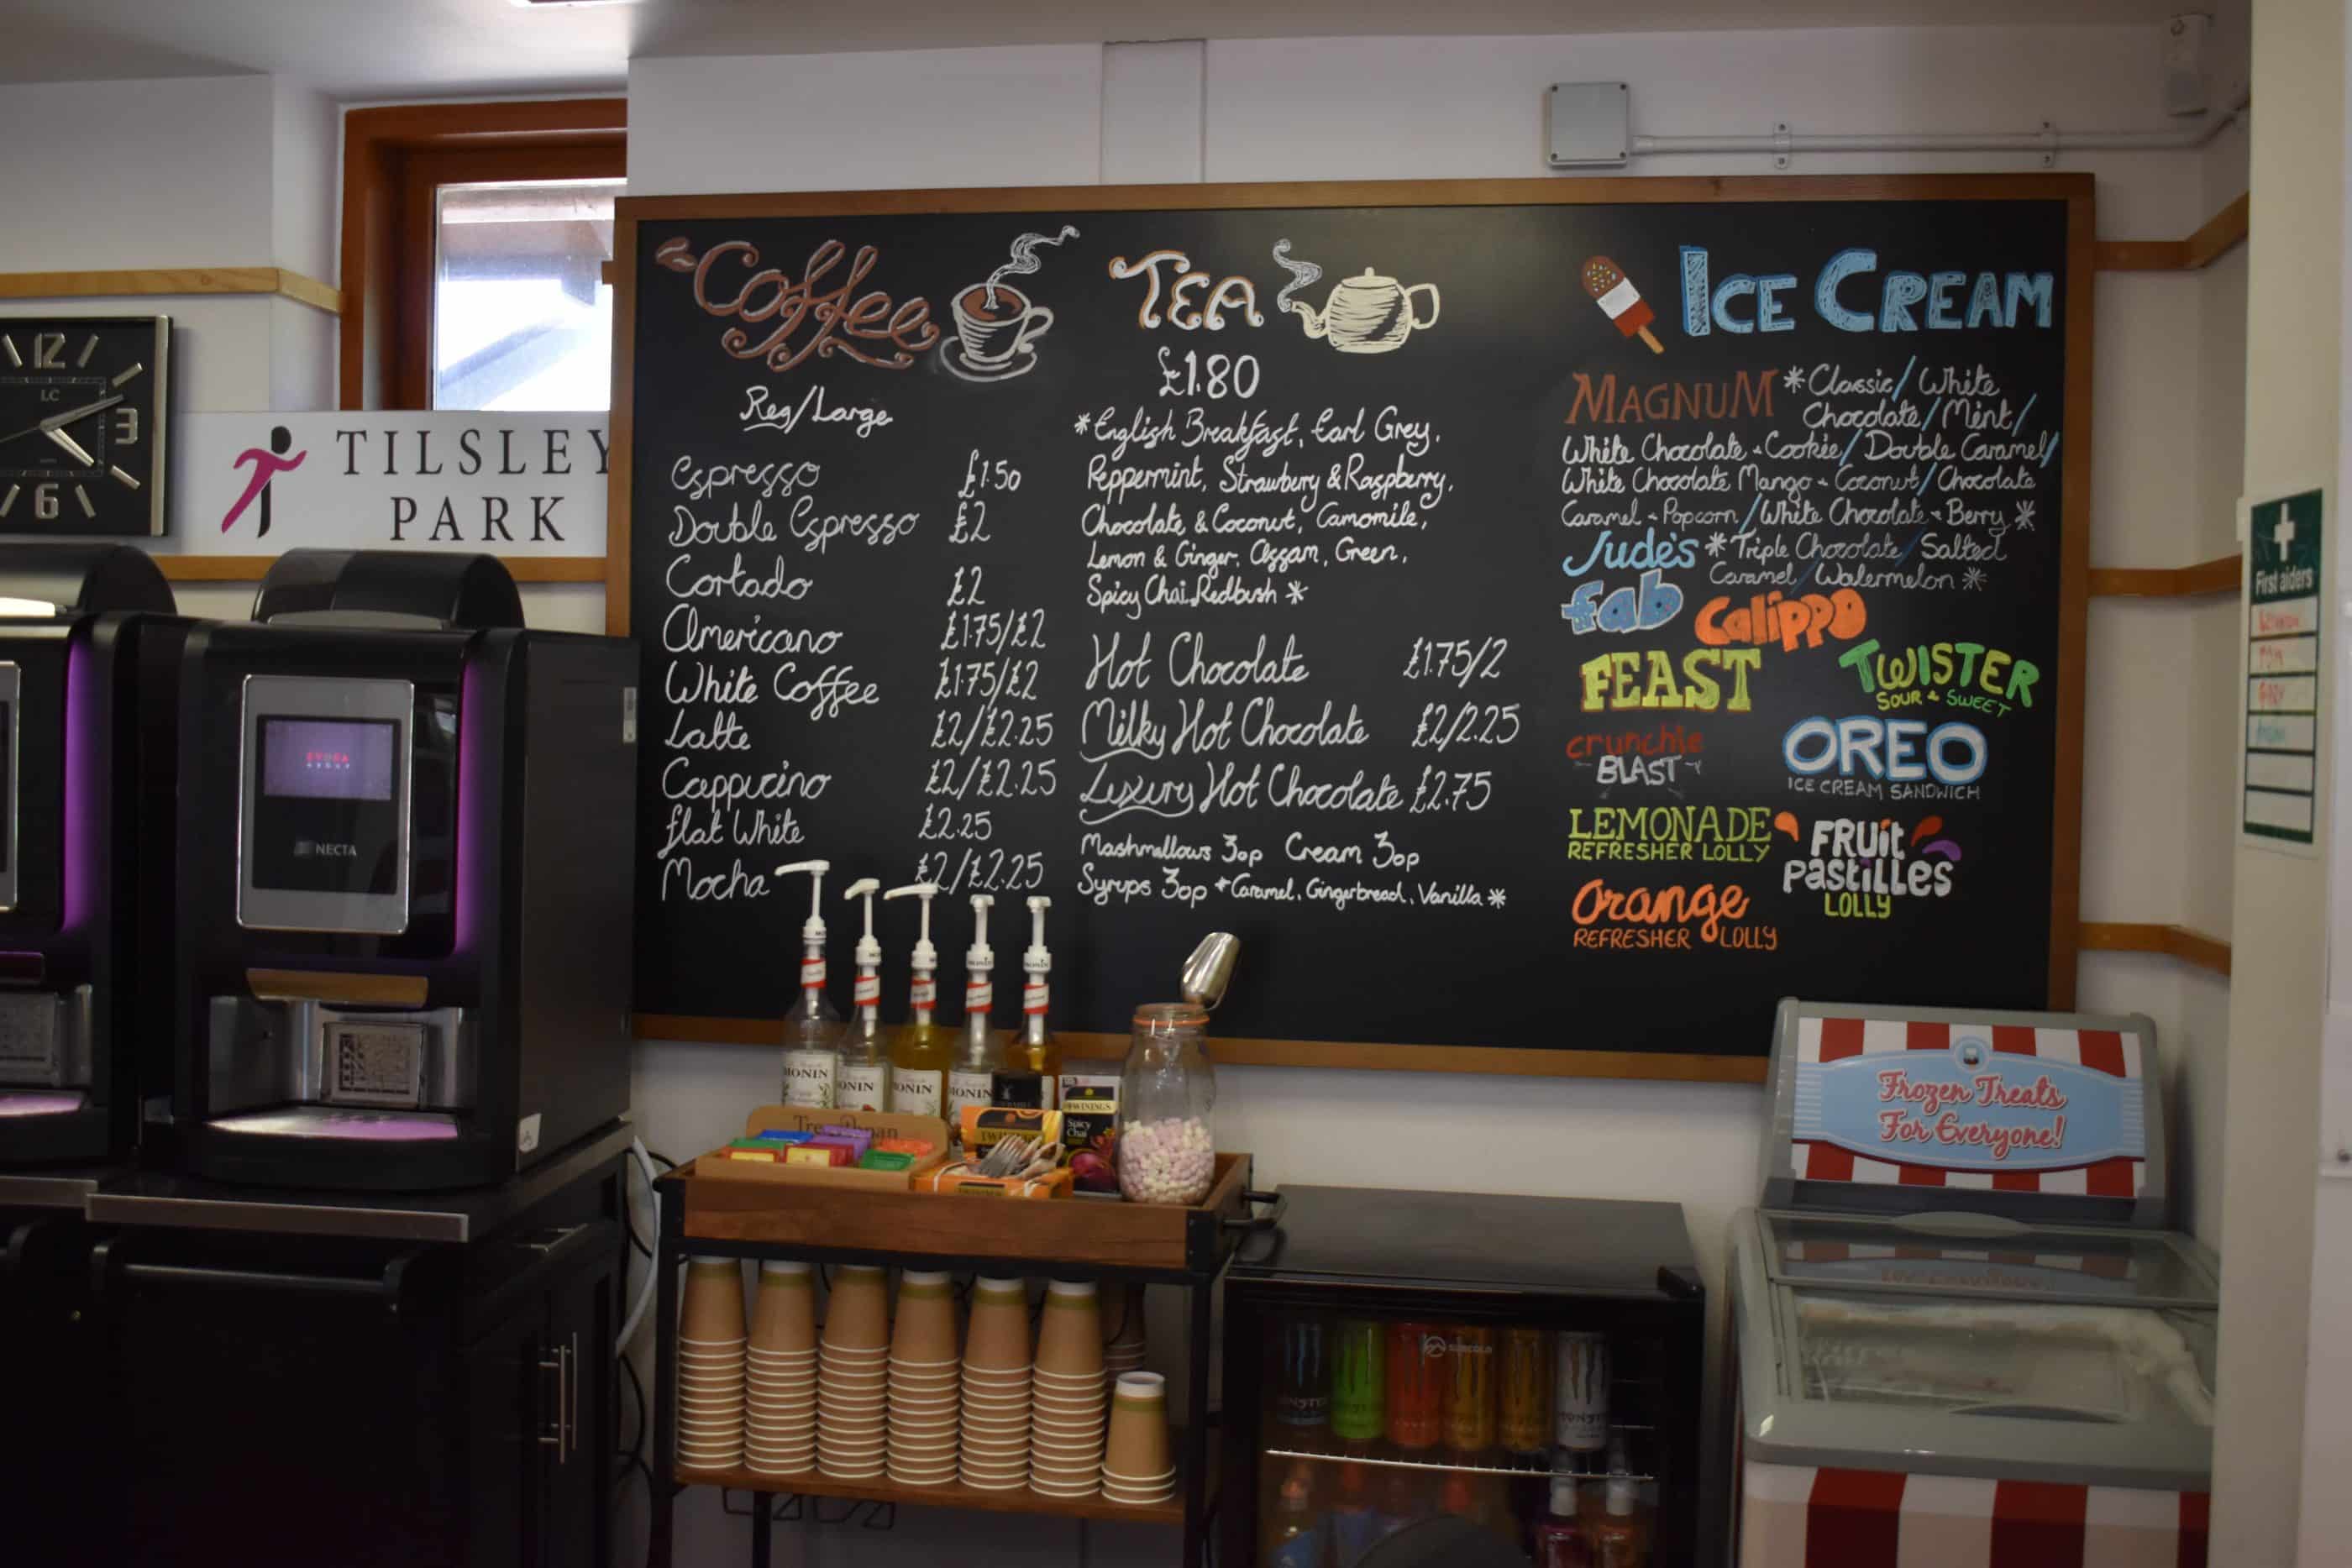 12
LC
3
6
TILSLEY
PARK
NECTA
Coffee
Reg/Large
Espresso £1.50
Double Espresso £2
Cortado £2
Americano £1.75/£2
White Coffee £1.75/£2
Latte £2/£2.25
Cappucino £2/£2.25
Flat White £2.25
Mocha £2/£2.25
TEA
£1.80
*English Breakfast, Earl Grey,
Peppermint, Strawbury & Raspberry,
Chocolate & Coconut, Camomile,
Lemon & Ginger, Assam, Green,
Spicy Chai, Redbush *
Hot Chocolate £1.75/2
Milky Hot Chocolate £2/2.25
Luxury Hot Chocolate £2.75
Mashmallows 30p Cream 30p
Syrups 30p *Caramel, Gingerbread, Vanilla *
ICE CREAM
MAGNUM *Classic/ White
Chocolate/Mint/
White Chocolate & Cookie/Double Caramel/
White Chocolate Mango & Coconut/Chocolate
Caramel & Popcorn/White Chocolate & Berry *
Jude's *Triple Chocolate/Salted
Caramel/Watermelon *
fab
Calippo
FEAST
TWISTER
SOUR & SWEET
crunchie
BLAST
OREO
ICE CREAM SANDWICH
LEMONADE
REFRESHER LOLLY
FRUit
PaStiLLes
LOLLY
Orange
REFRESHER LOLLY
First aiders
MONIN
MONIN
MONIN
MONIN
TWININGS
Spicy
Chai
Frozen Treats
For Everyone!